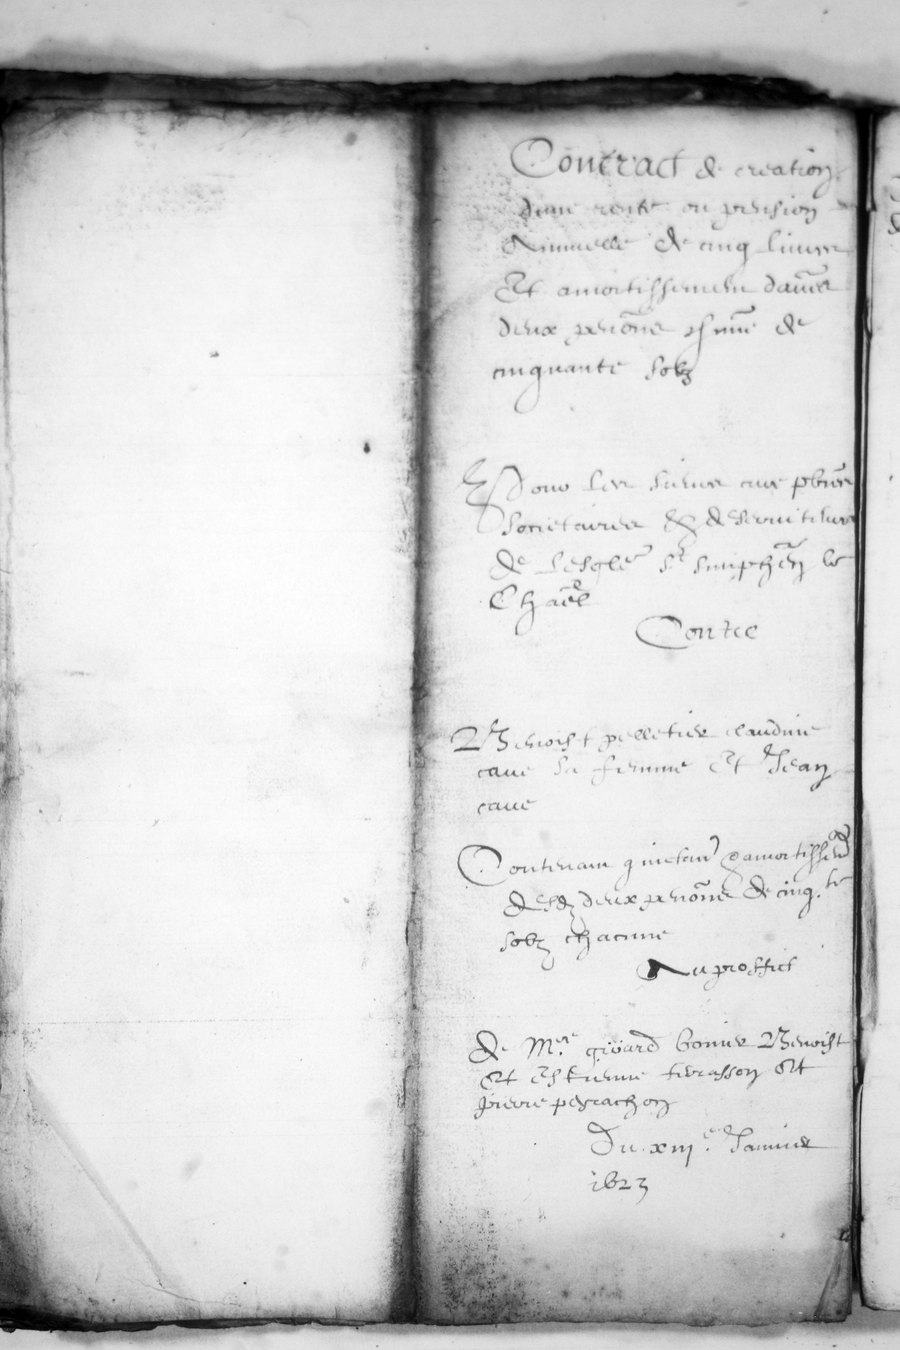 Contract de creation
dune rente ou pension
Annuelle de cinq livres
Et amortissement dautres
deux pentiones de
cinquante solz
Pour les sieurs cure pbres
Societaires & deserviteurs
de Lesgle St simphen le
Chael
Contre
Benoist pelletier claudine
cave sa femme Et Jean
cave
Contenant quictance amortissent
desd deux pentiones de cinq.te
solz chacune
Au proffict
de Mre girard Benoist
Et Estienne terrasson Et
pierre peyrachon
Du xiije Janvier
1623